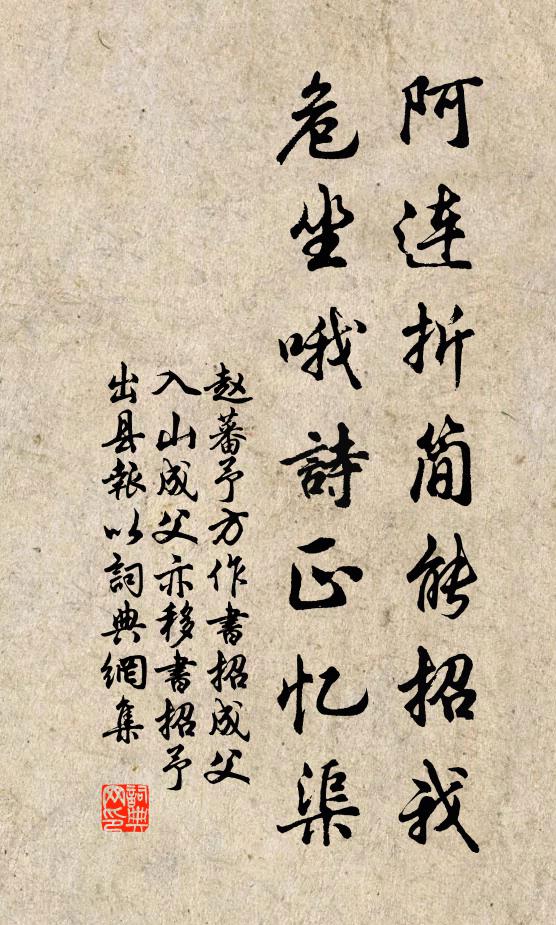 阿连折简能招我
危坐哦詩正忆渠
赵蕃予方作書招成父
入山成父亦移書招予
出县報以詞典網集
詞典
网印